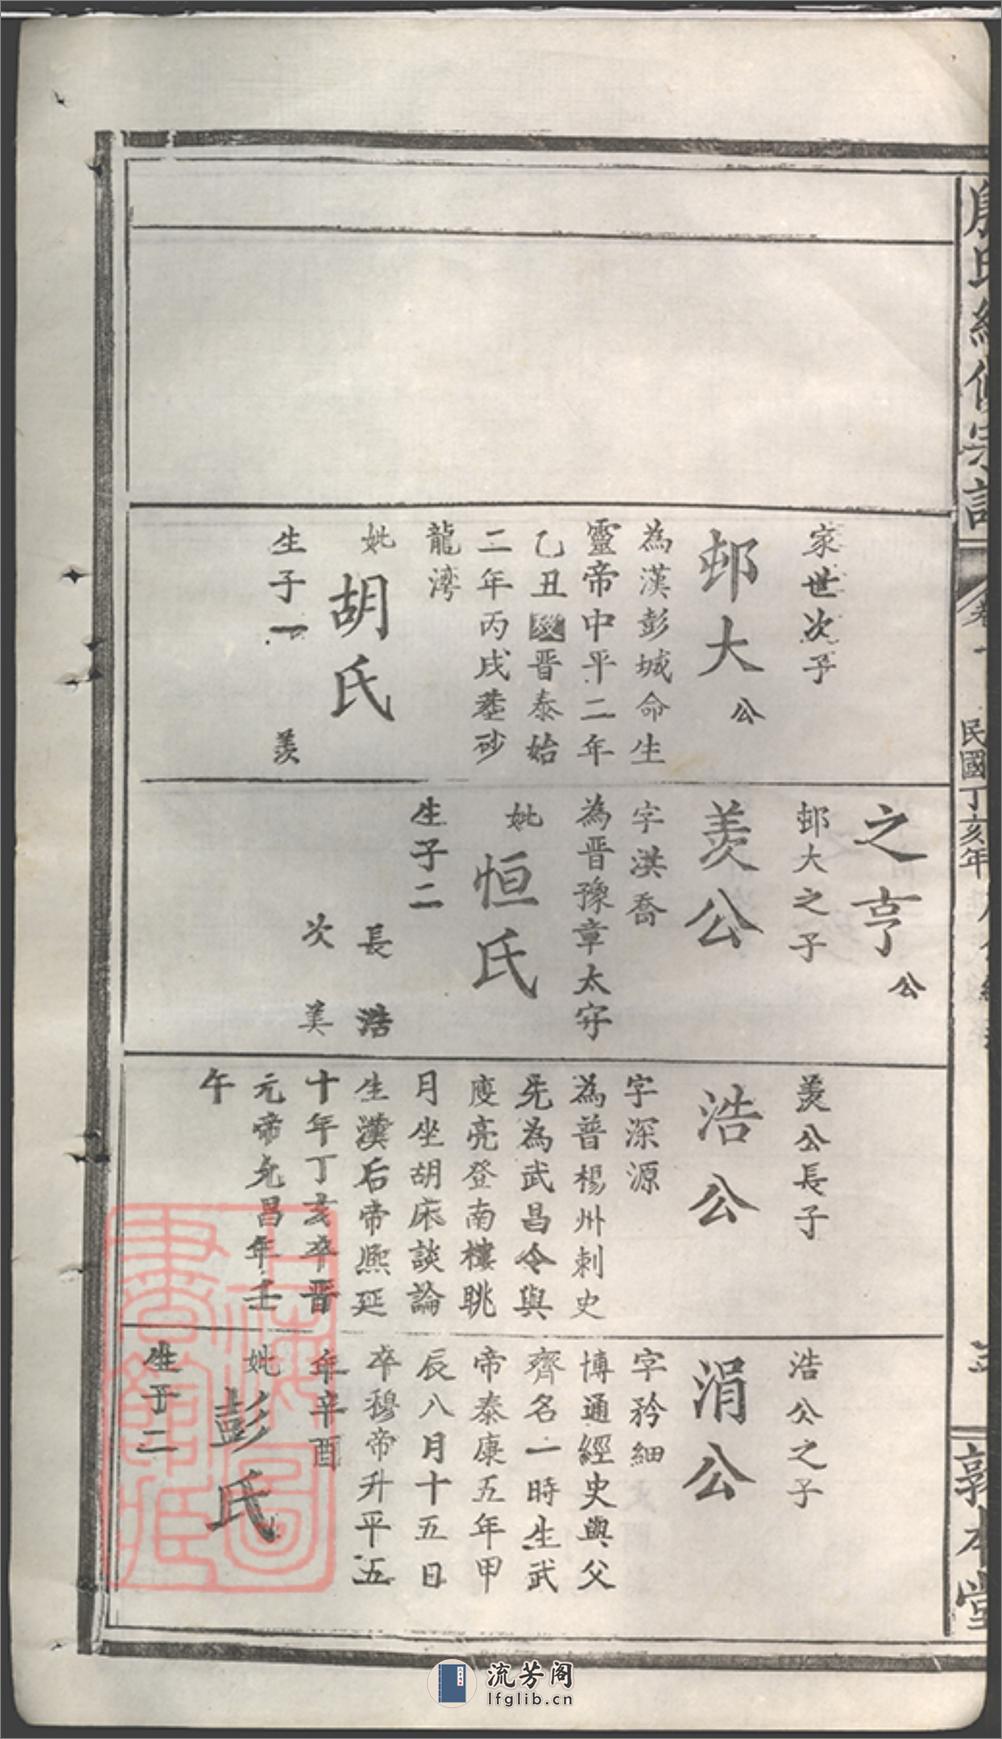 氏續修宗譜
卷一
民國丁亥年
敦本堂
家世次子
邨大公
為漢彭城命生
靈帝中平二年
乙丑歿晋泰始
二年丙戌塟砂
龍湾
妣胡氏
生子一 羨
之亨公
邨大之子
羨公
字洪喬
為晋豫章太守
妣恒氏
生子二
長浩
次美
羨公長子
浩公
字深源
為普楊州刺史
先為武昌令與
庾亮登南樓眺
月坐胡床談論
生漢后帝熈延
十年丁亥卒晋
元帝允昌年壬
午
浩公之子
涓公
字矜細
博通經史與父
齊名一時生武
帝泰康五年甲
辰八月十五日
卒穆帝升平五
年辛酉
妣彭氏
生子二
上海圖書館藏
流芳阁
lfglib.cn